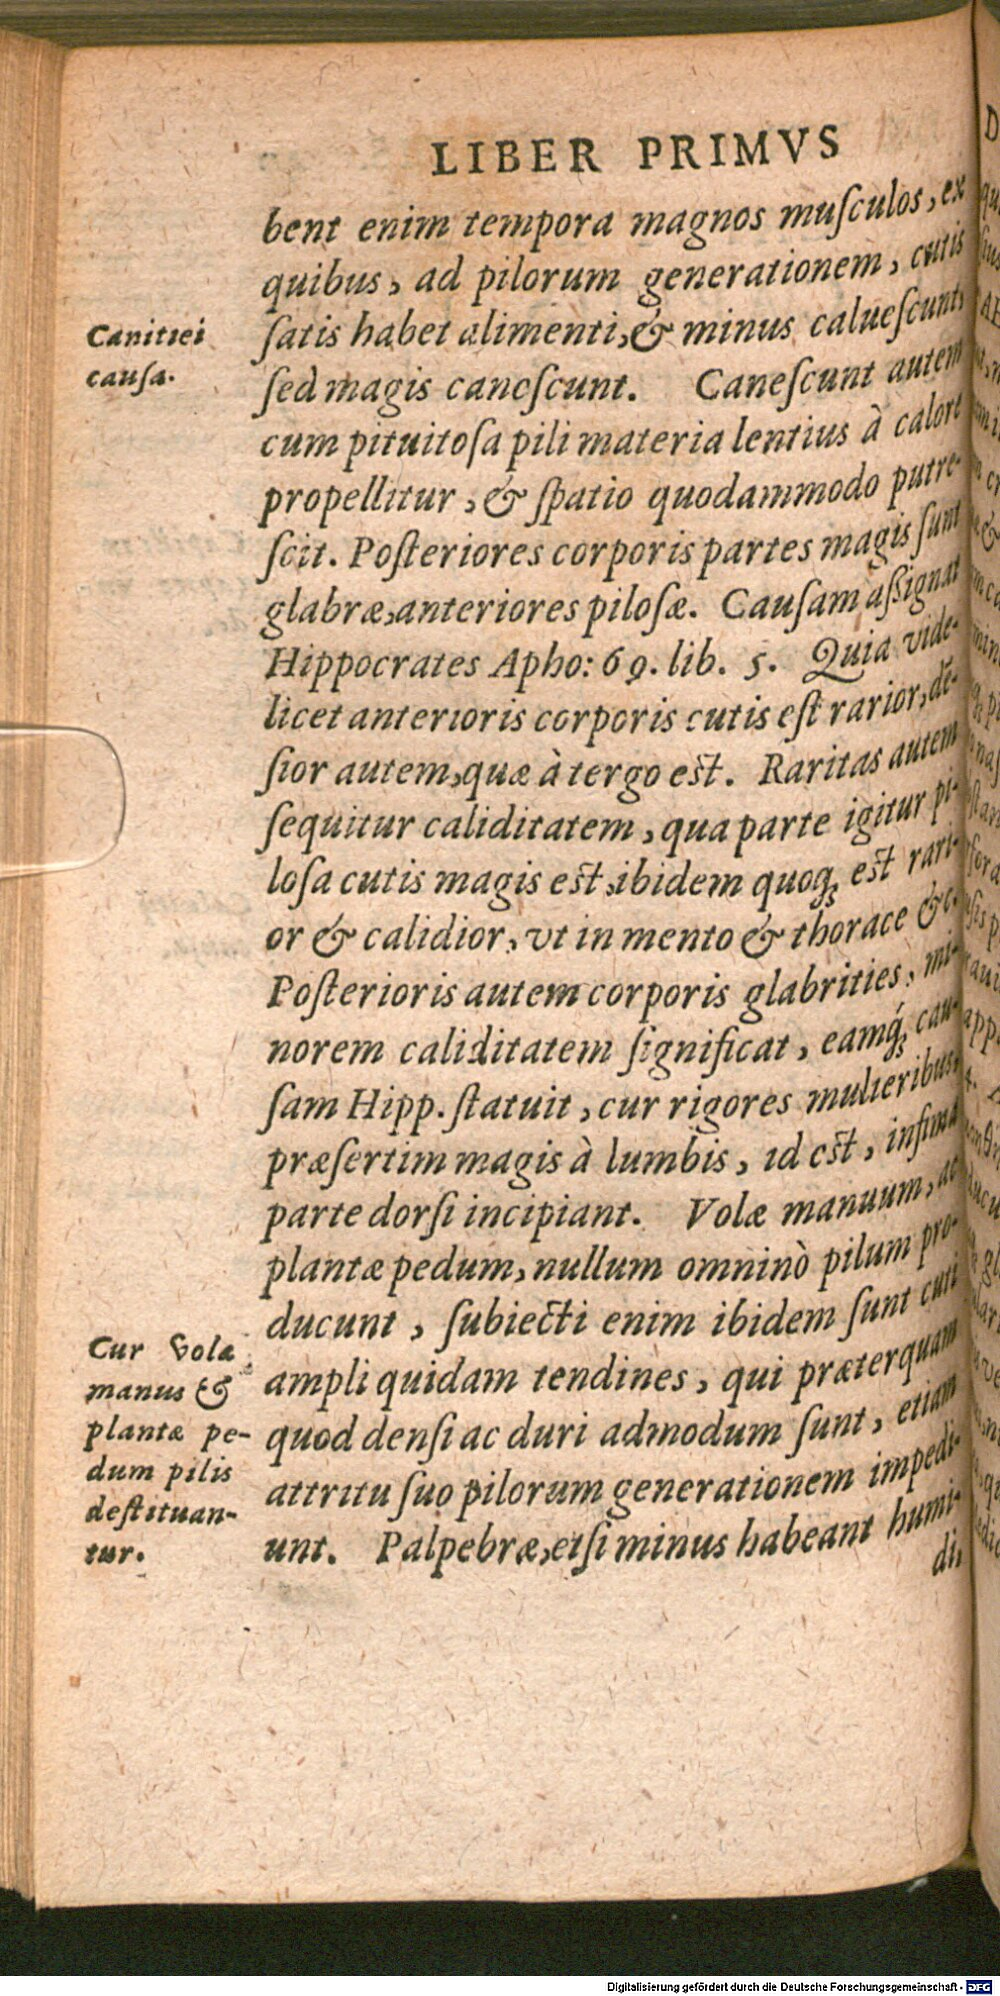 LIBER PRIMVS
bent enim tempora magnos muſculos, ex
quibus, ad pilorum generationem, cutis
ſatis habet alimenti, & minus calueſcunt,
ſed magis caneſcunt. Caneſcunt autem
cum pituitoſa pili materia lentius à calore
propellitur, & ſpatio quodammodo putre-
ſcit. Poſteriores corporis partes magis ſunt
glabræ, anteriores piloſæ. Cauſam aſsignat
Hippocrates Apho: 69. lib. 5. Quia vide-
licet anterioris corporis cutis eſt rarior, dē-
ſior autem, quæ à tergo eſt. Raritas autem
ſequitur caliditatem, qua parte igitur pi-
loſa cutis magis eſt, ibidem quoq; eſt rari-
or & calidior, vt in mento & thorace &c.
Poſterioris autem corporis glabrities, mi-
norem caliditatem ſignificat, eamq́; cau-
ſam Hipp. ſtatuit, cur rigores mulieribus,
præſertim magis à lumbis, id eſt, infima
parte dorſi incipiant. Volæ manuum, ac
plantæ pedum, nullum omninò pilum pro-
ducunt, ſubiecti enim ibidem ſunt cuti
ampli quidam tendines, qui præterquam
quod denſi ac duri admodum ſunt, etiam
attritu ſuo pilorum generationem impedi-
unt. Palpebræ, etſi minus habeant humi-
di,
Canitiei
cauſa.
Cur Volæ
manus &
plantæ pe-
dum pilis
deſtituan-
tur.
Digitalisierung gefördert durch die Deutsche Forschungsgemeinschaft - DFG